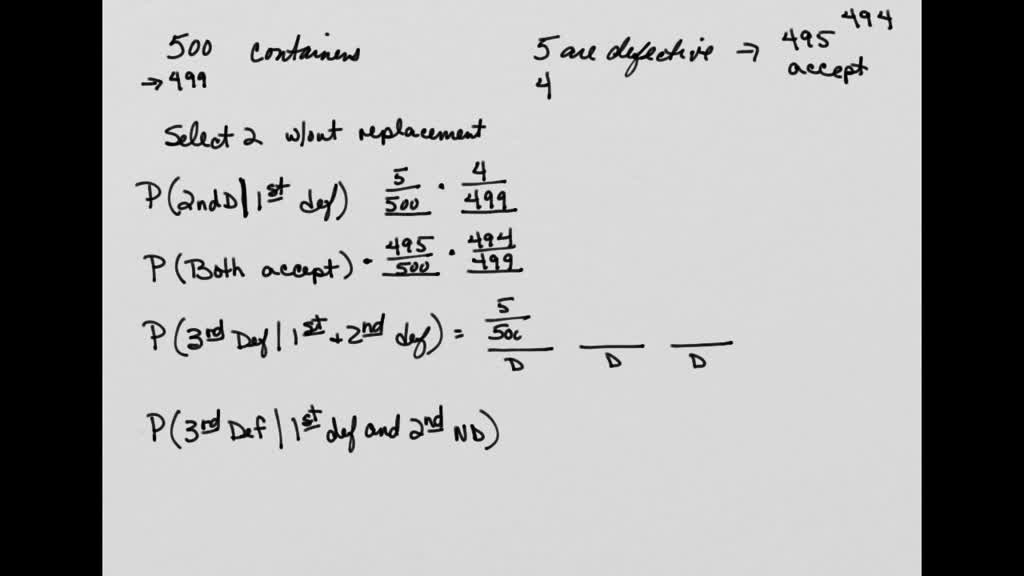 500 containers 5 are defective ⇒ 495 494
→ 499 4 accept
Select 2 w/out replacement
P(2nd D | 1st def) 5/500 · 4/499
P(Both accept) · 495/500 · 494/499
P(3rd Def | 1st + 2nd def) = 5/500
D D D
P(3rd Def | 1st def and 2nd ND)